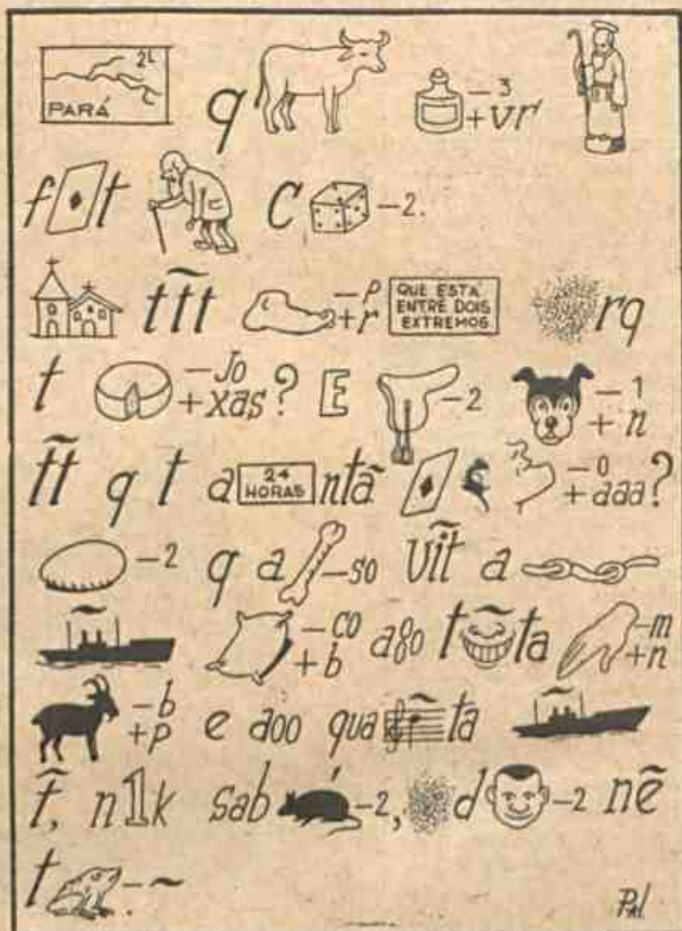 2L
PARÁ q -3 +vr
f t C -2.
tt̃t -P +r QUE ESTÁ ENTRE DOIS EXTREMOS rq
t -Jo +xas? E -2 -1 +n
t̃t q t a 24 HORAS ntã -o +aaa?
-2 q a -so Vĩt a
-co +b a8o t ta -m +n
-b +p e aoo qua ta
t̃, n1k sab -2, d -2 nẽ
t -~.
Pal.